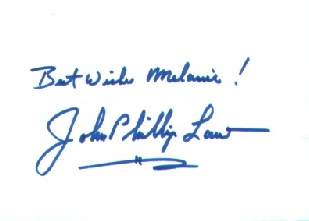 Best Wishes Melanie!
John Phillip Law